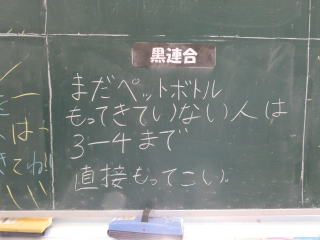 黒連合
まだペットボトル
もってきていない人は
3-4まで
直接もってこい。
は
きてね!!